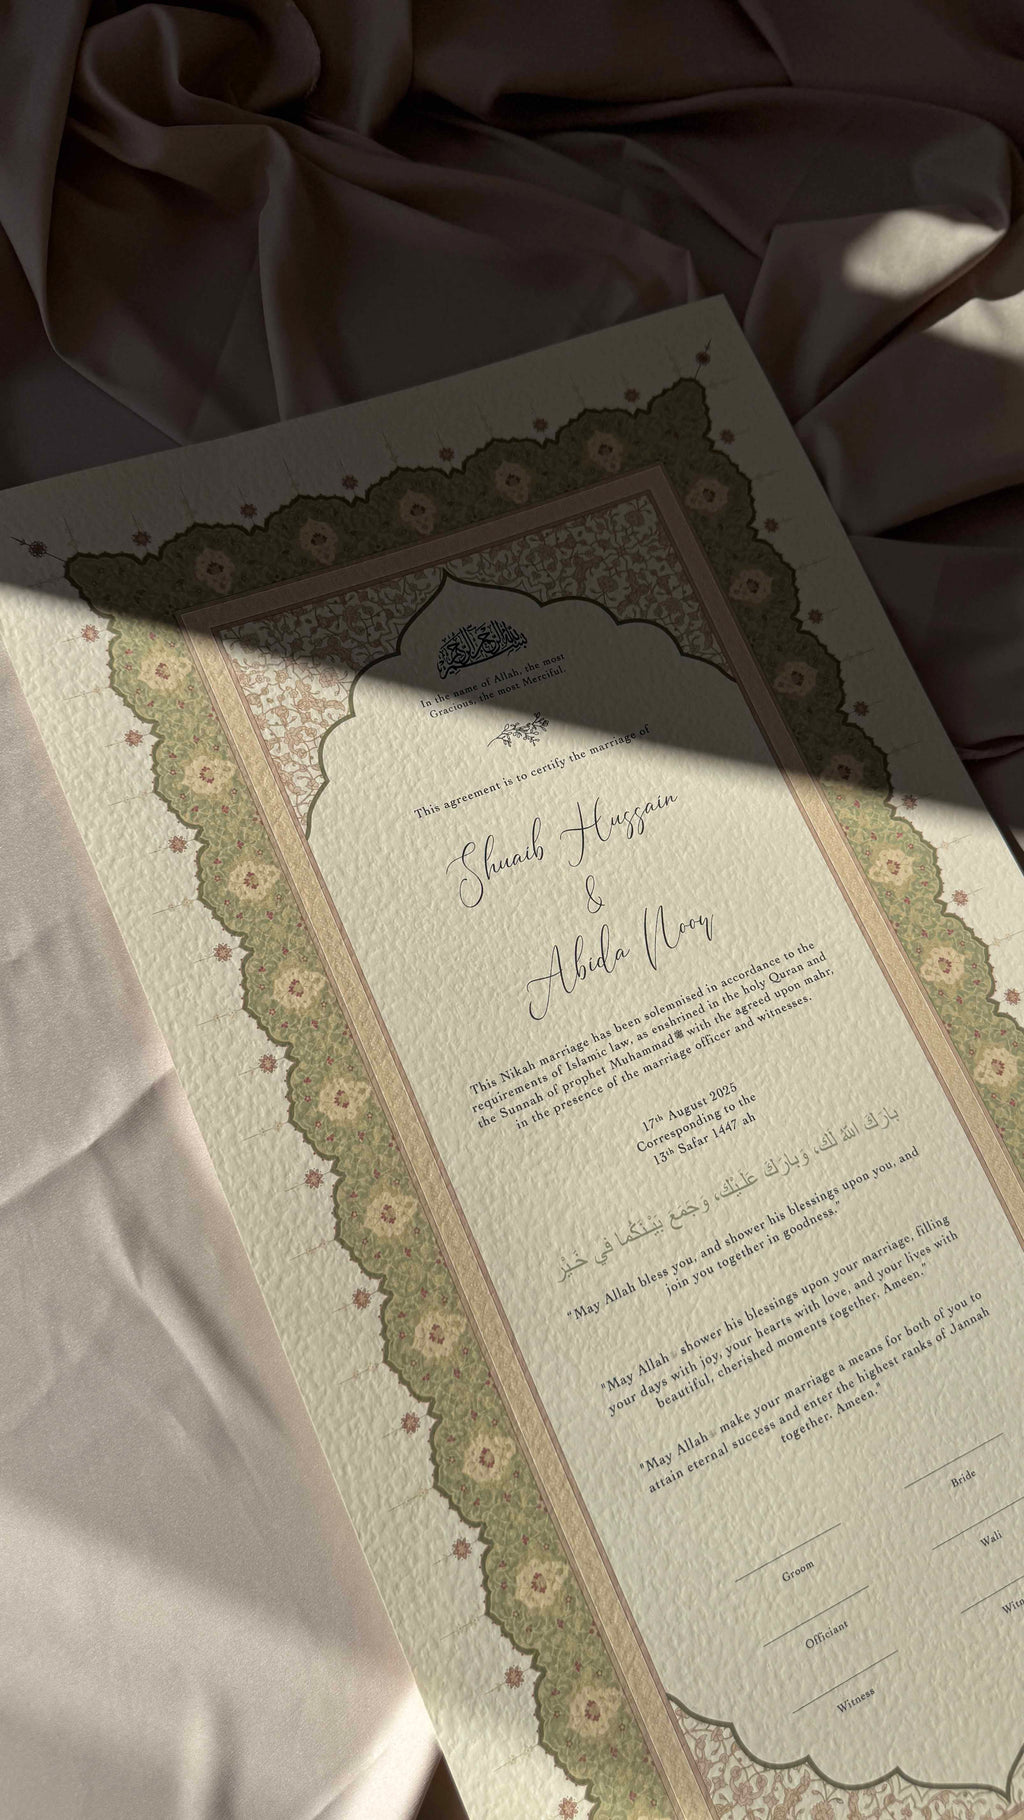 بسم الله الرحمن الرحيم
In the name of Allah, the most
Gracious, the most Merciful.
This agreement is to certify the marriage of
Shuaib Hussain
&
Abida Noor
This Nikah marriage has been solemnised in accordance to the
requirements of Islamic law, as enshrined in the holy Quran and
the Sunnah of prophet Muhammadﷺ with the agreed upon mahr,
in the presence of the marriage officer and witnesses.
17th August 2025
Corresponding to the
13th Safar 1447 ah
بَارَكَ اللهُ لَكَ، وَبَارَكَ عَلَيْكَ، وَجَمَعَ بَيْنَكُمَا فِي خَيْرٍ
“May Allah bless you, and shower his blessings upon you, and
join you together in goodness.”
"May Allah shower his blessings upon your marriage, filling
your days with joy, your hearts with love, and your lives with
beautiful, cherished moments together. Ameen."
"May Allah make your marriage a means for both of you to
attain eternal success and enter the highest ranks of Jannah
together. Ameen."
Groom
Bride
Officiant
Wali
Witness
Witn